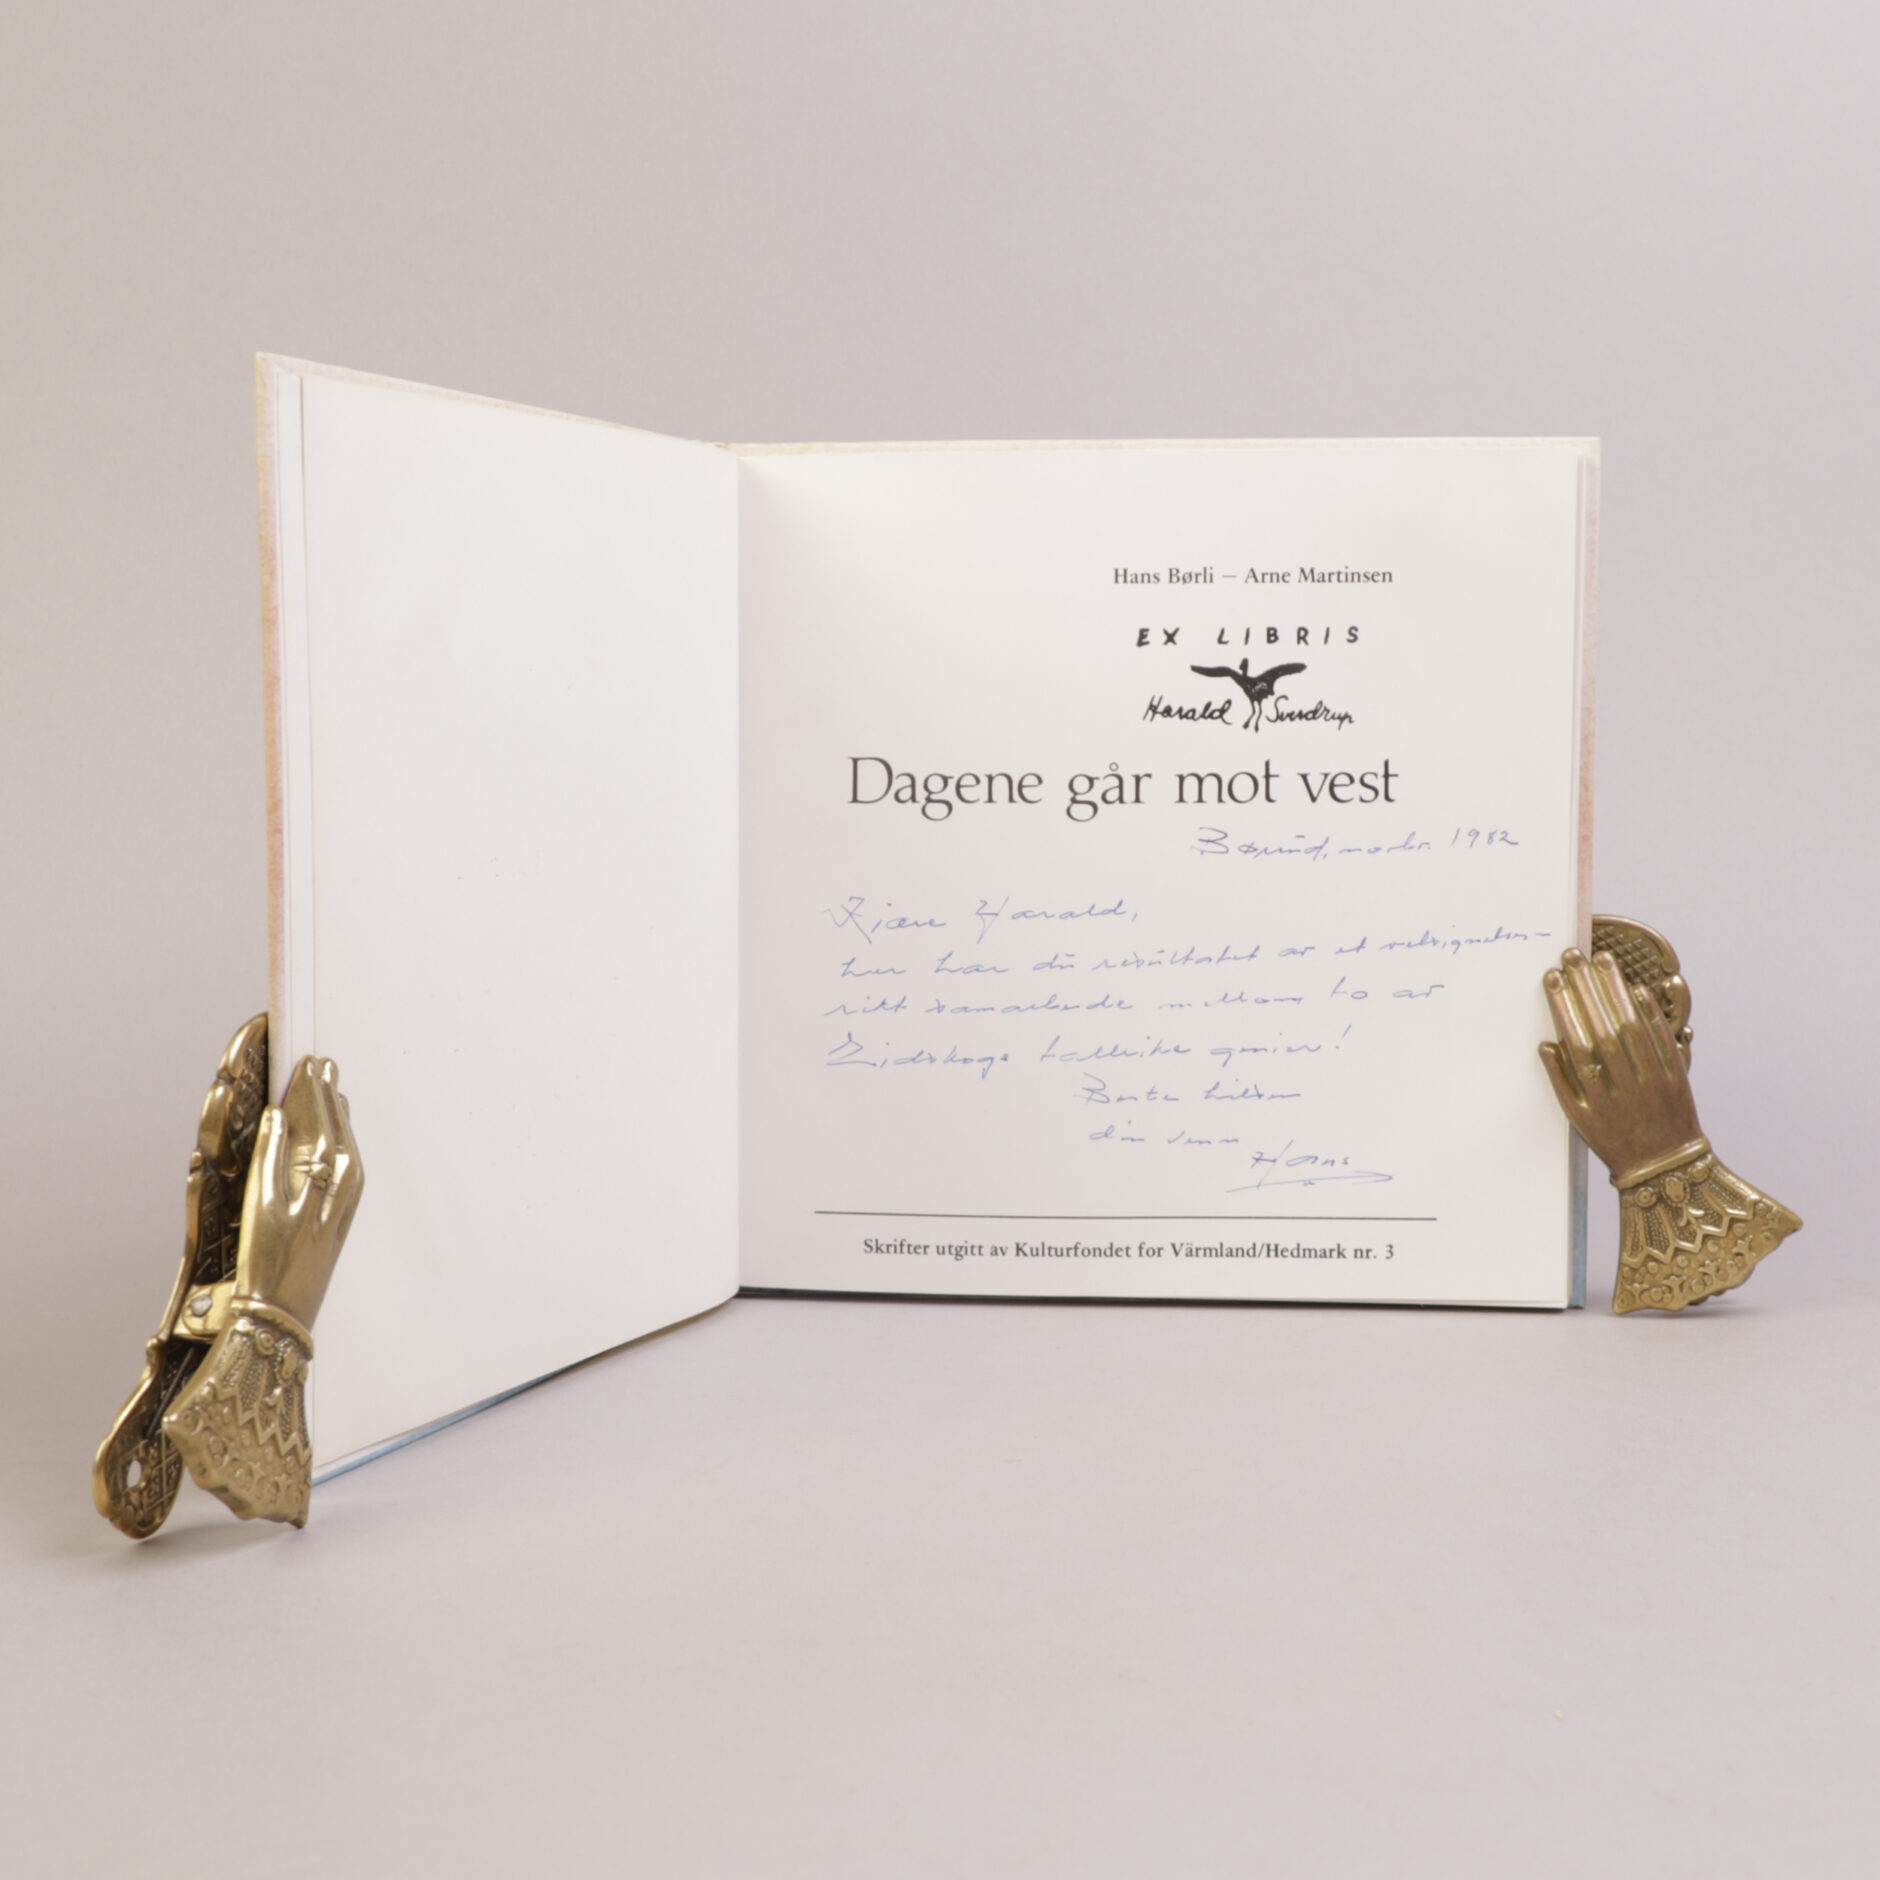 Hans Børli – Arne Martinsen
EX LIBRIS
Harald Sverdrup
Dagene går mot vest
Børud, novbr. 1982
Kjære Harald,
her har du resultatet av et velsignelses-
rikt samarbeide mellom to av
Eidskogs tallrike genier!
Beste hilsen
din venn
Hans
Skrifter utgitt av Kulturfondet for Värmland/Hedmark nr. 3